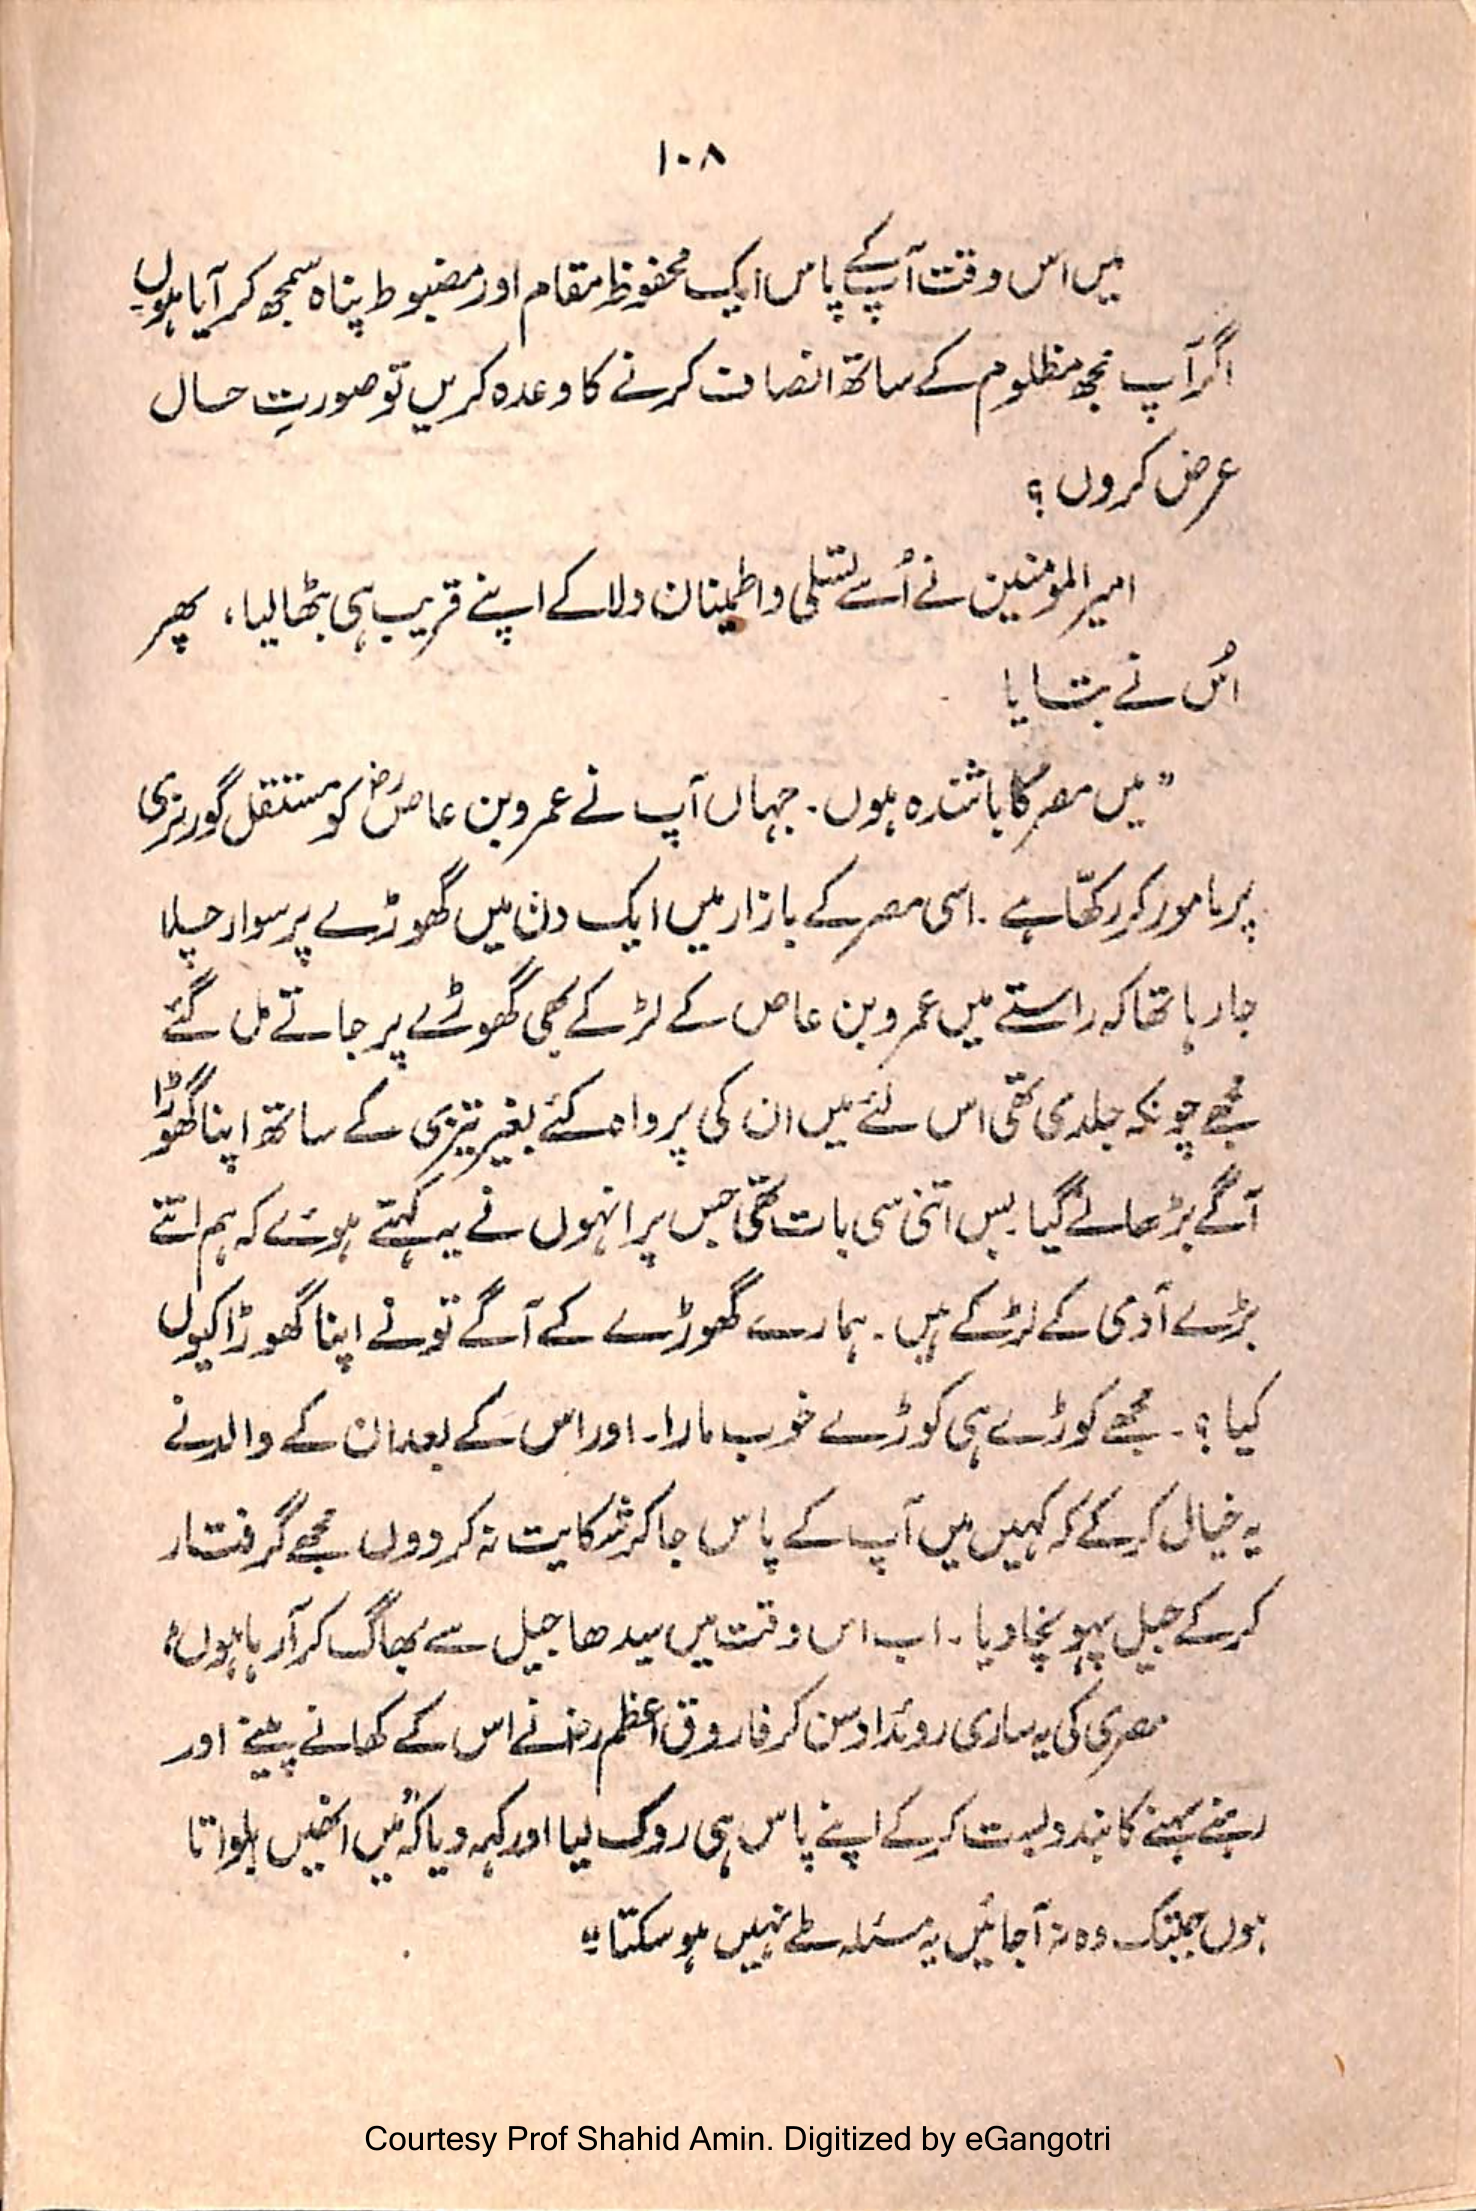 ۱۰۸
میں اس وقت آپ کے پاس ایک محفوظ مقام اور مضبوط پناہ سمجھ کر آیا ہوں۔
اگر آپ مجھ مظلوم کے ساتھ انصاف کرنے کا وعدہ کریں تو صورتِ حال
عرض کروں ؟
امیر المومنین نے اُسے تسلی و اطمینان دلا کے اپنے قریب ہی بٹھا لیا، پھر
اُس نے بتایا
”میں مصر کا باشندہ ہوں۔ جہاں آپ نے عمرو بن عاصؓ کو مستقل گورنری
پر مامور کر رکھّا ہے۔ اسی مصر کے بازار میں ایک دن میں گھوڑے پر سوار چلا
جا رہا تھا کہ راستے میں عمرو بن عاص کے لڑکے بھی گھوڑے پر جاتے مل گئے
مجھے چونکہ جلدی تھی اس لئے میں ان کی پرواہ کئے بغیر تیزی کے ساتھ اپنا گھوڑا
آگے بڑھا لے گیا۔ بس اتنی سی بات تھی جس پر انہوں نے یہ کہتے ہوئے کہ ہم اتنے
بڑے آدمی کے لڑکے ہیں۔ ہمارے گھوڑے کے آگے تو نے اپنا گھوڑا کیوں
کیا ؟۔ مجھے کوڑے ہی کوڑے خوب مارا۔ اور اس کے بعد ان کے والد نے
یہ خیال کر کے کہ کہیں میں آپ کے پاس جا کر شکایت نہ کر دوں مجھے گرفتار
کر کے جیل پہونچا دیا۔ اب اس وقت میں سیدھا جیل سے بھاگ کر آ رہا ہوں“
مصری کی یہ ساری روئداد سن کر فاروق اعظم رضؓ نے اس کے کھانے پینے اور
رہنے سہنے کا بندوبست کر کے اپنے پاس ہی روک لیا اور کہہ دیا کہ ”میں انھیں بلواتا
ہوں جبتک وہ نہ آجائیں یہ مسئلہ طے نہیں ہو سکتا۔“
Courtesy Prof Shahid Amin. Digitized by eGangotri